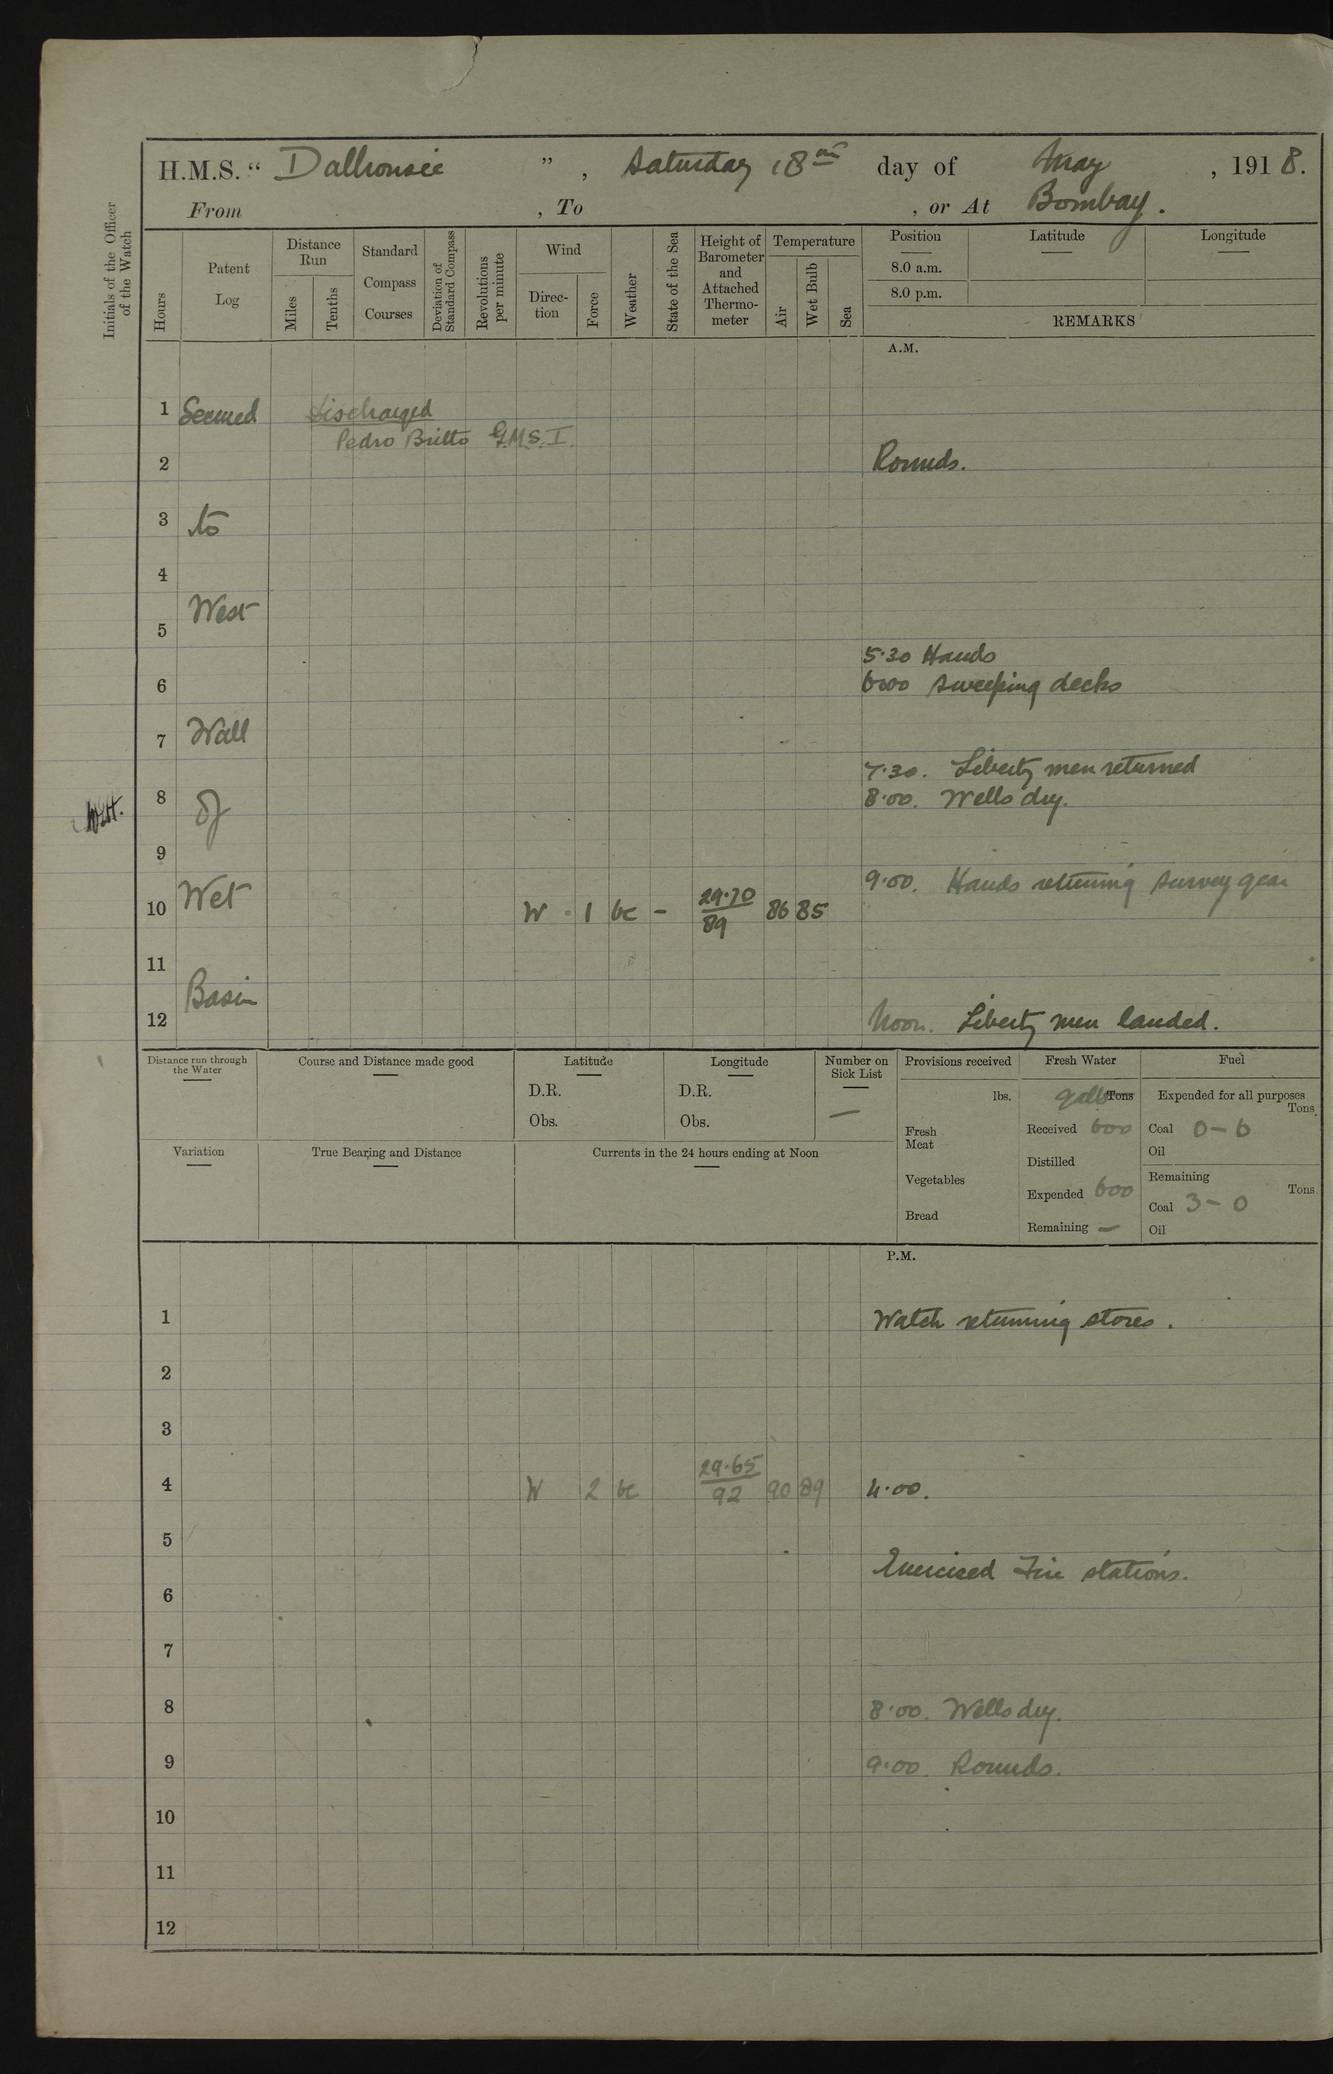 H.M.S. “ Dalhousie ” , Saturday 18th day of May , 1918.
From , To , or At Bombay .
Initials of the Officer of the Watch
Hours
Patent Log
Distance Run
Miles
Tenths
Standard Compass Courses
Deviation of Standard Compass
Revolutions per minute
Wind
Direc-tion
Force
Weather
State of the Sea
Height of Barometer and Attached Thermo-meter
Temperature
Air
Wet Bulb
Sea
Position
8.0 a.m.
8.0 p.m.
Latitude
Longitude
REMARKS
A.M.
1 Secured Discharged
Pedro Britto G.M.S. I.
2 Rounds.
3 to
4
West
5
5.30 Hands
6 6.00 sweeping decks
7 Wall
7.30. Liberty men returned
8 of 8.00. Wells dry.
9
9.00. Hands returning survey gear
10 Wet W 1 bc - 29.70 86 85
89
11
Basin
12 Noon. Liberty men landed.
Distance run through the Water
Course and Distance made good
Latitude
D.R.
Obs.
Longitude
D.R.
Obs.
Number on Sick List
—
Provisions received
lbs.
Fresh Meat
Vegetables
Bread
Fresh Water
galls Tons
Received 600
Distilled
Expended 600
Remaining —
Fuel
Expended for all purposes
Tons
Coal 0-6
Oil
Remaining
Tons
Coal 3-0
Oil
Variation
True Bearing and Distance
Currents in the 24 hours ending at Noon
P.M.
1 Watch returning stores.
2
3
4 W 2 bc 29.65 90 89 4.00.
92
5
Exercised Fire stations.
6
7
8 8.00. Wells dry.
9 9.00. Rounds.
10
11
12